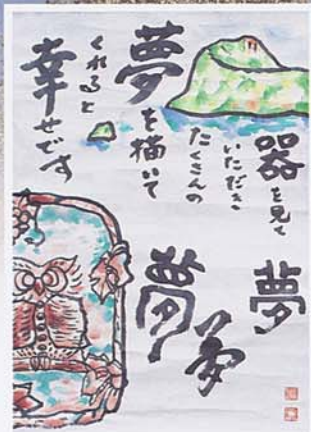 器を見て
いただき
たくさんの
夢を描いて
くれると
幸せです
夢
夢
夢